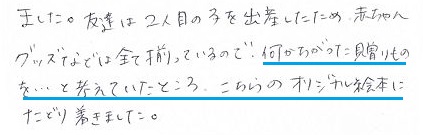 ました。友達は2人目の子を出産したため、赤ちゃん
グッズなどは全て揃っているので、何かちがった贈りもの
を…と考えていたところ、こちらのオリジナル絵本に
たどり着きました。